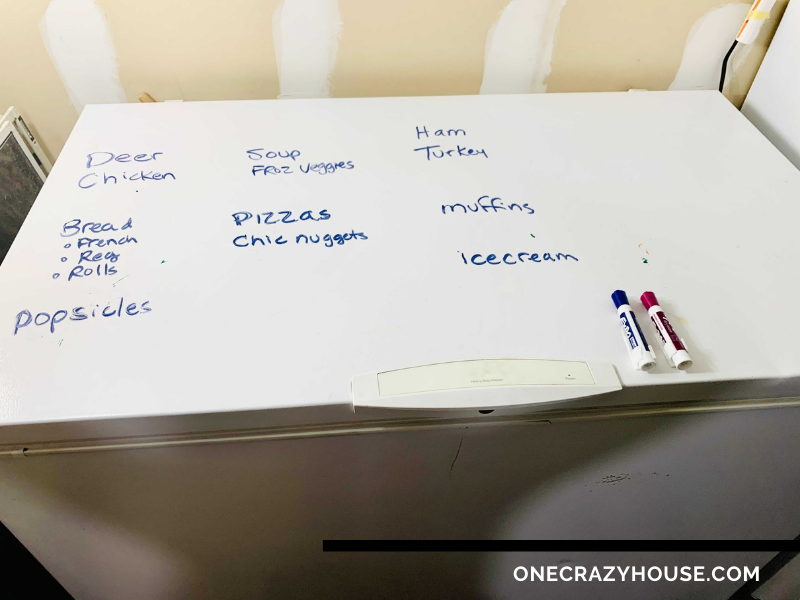 Deer
Chicken
Soup
FROZ Veggies
Ham
Turkey
Bread
• French
• Reg
• Rolls
PIZZAS
Chic nuggets
muffins
icecream
popsicles
ONECRAZYHOUSE.COM